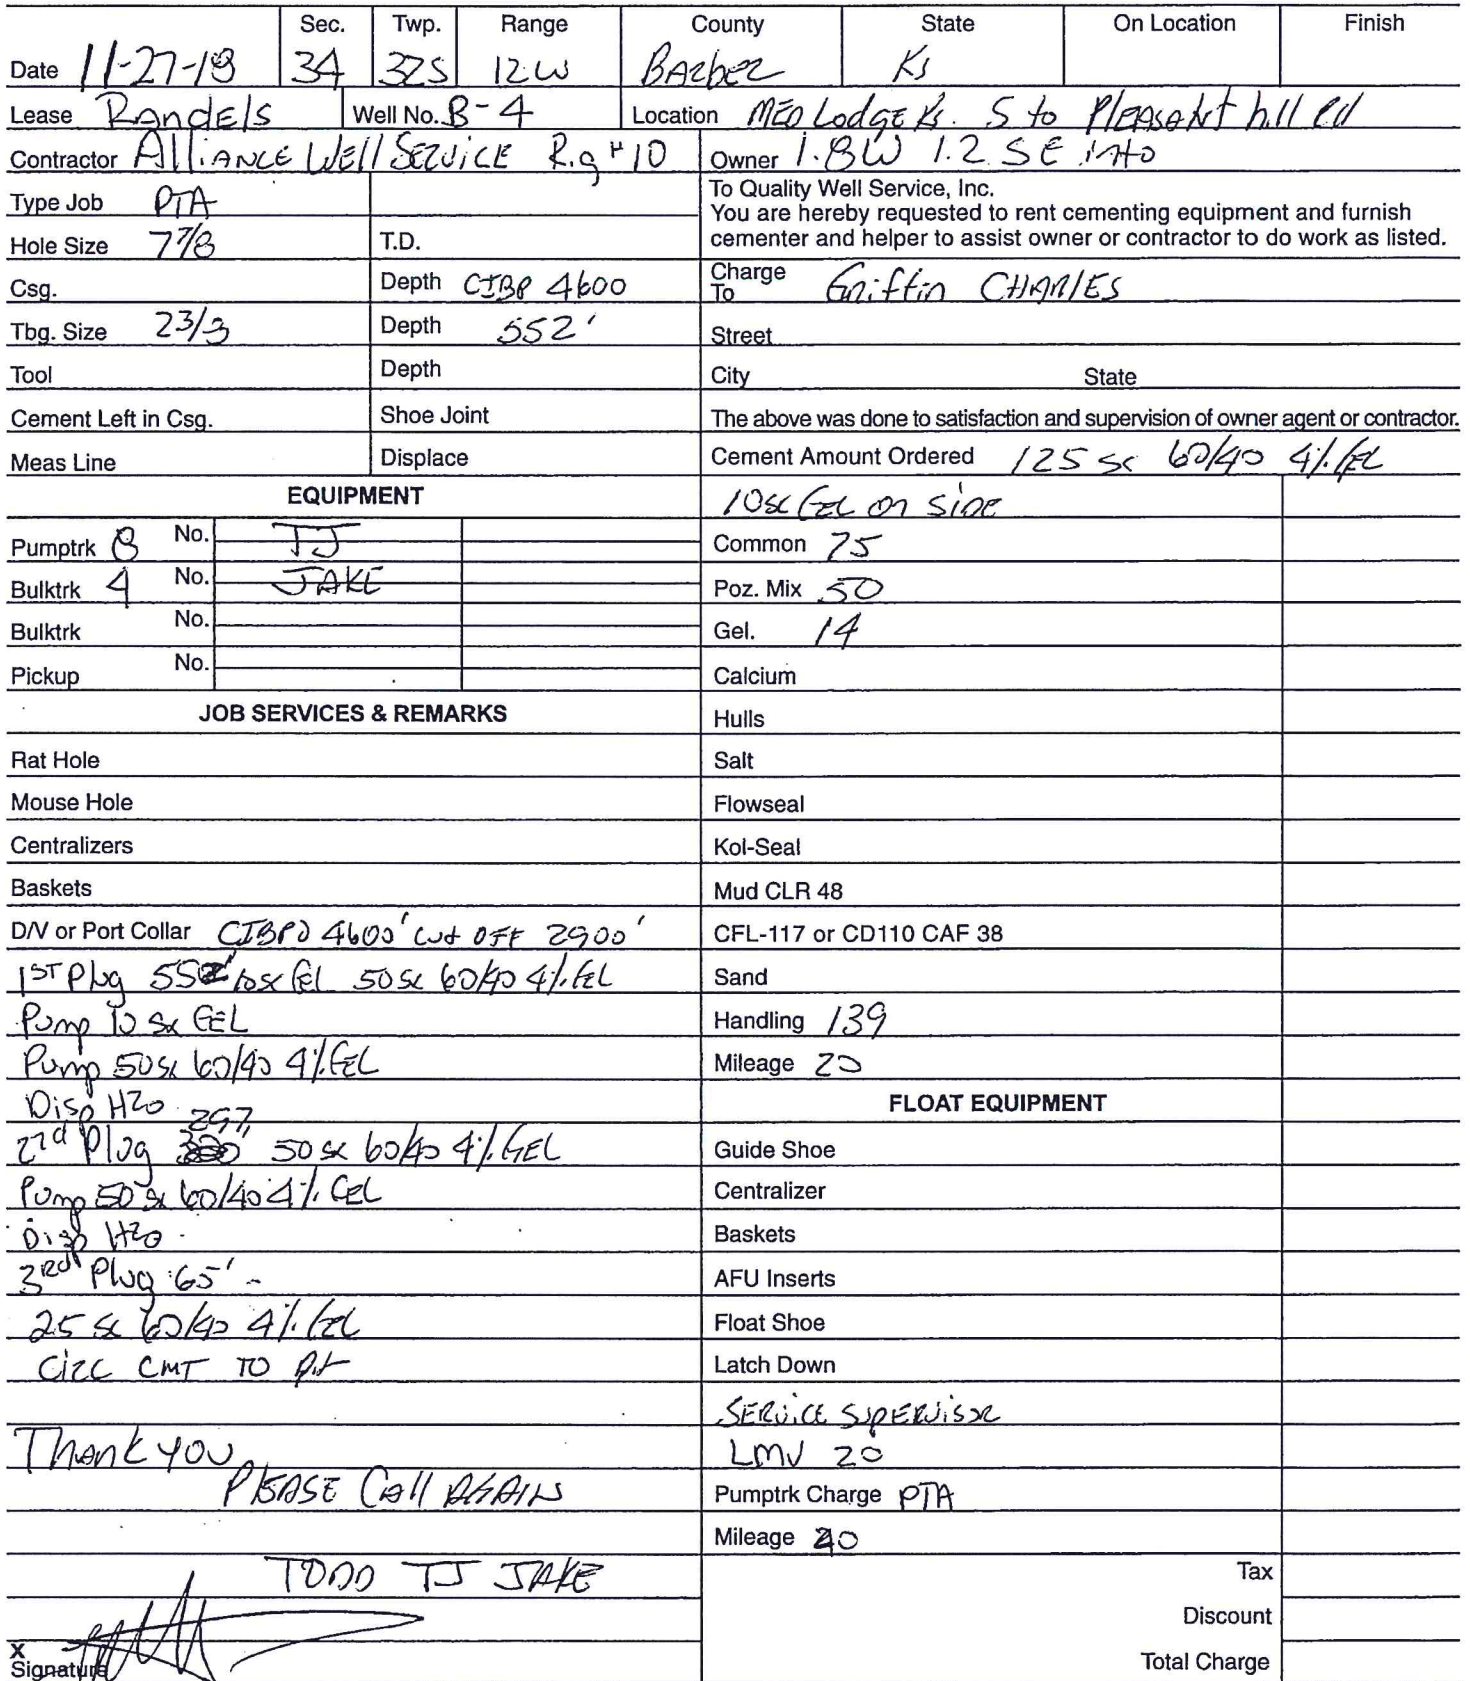 Sec. Twp. Range County State On Location Finish
Date 11-27-18 34 32S 12W Barber Ks
Lease Randels Well No. B-4 Location Med Lodge Ks. S to Pleasant hill Rd
Contractor Alliance Well Service Rig #10 Owner 1.8W 1.2 S E into
Type Job PTA
Hole Size 7 7/8 T.D.
Csg. Depth CIBP 4600
Tbg. Size 2 3/8 Depth 552'
Tool Depth
Cement Left in Csg. Shoe Joint
Meas Line Displace
To Quality Well Service, Inc.
You are hereby requested to rent cementing equipment and furnish
cementer and helper to assist owner or contractor to do work as listed.
Charge To Griffin Charles
Street
City State
The above was done to satisfaction and supervision of owner agent or contractor.
Cement Amount Ordered 125 sx 60/40 4% Gel
10sx Gel on side
EQUIPMENT
Pumptrk 8 No. TJ
Bulktrk 4 No. JAKE
Bulktrk No.
Pickup No.
JOB SERVICES & REMARKS
Rat Hole
Mouse Hole
Centralizers
Baskets
D/V or Port Collar CIBP@ 4600' Cut off 2900'
1ST Plug 552' 10sx Gel 50sx 60/40 4% Gel
Pump 10 sx GEL
Pump 50sx 60/40 4% Gel
Disp H2O
297'
2nd Plug 50 sx 60/40 4% GEL
Pump 50 sx 60/40 4% Gel
Disp H2O
3RD Plug 65'
25 sx 60/40 4% Gel
Circ CMT TO Pit
Thank you
Please Call Again
TODD TJ JAKE
X
Signature
Common 75
Poz. Mix 50
Gel. 14
Calcium
Hulls
Salt
Flowseal
Kol-Seal
Mud CLR 48
CFL-117 or CD110 CAF 38
Sand
Handling 139
Mileage 20
FLOAT EQUIPMENT
Guide Shoe
Centralizer
Baskets
AFU Inserts
Float Shoe
Latch Down
Service Supervisor
LMV 20
Pumptrk Charge PTA
Mileage 20
Tax
Discount
Total Charge